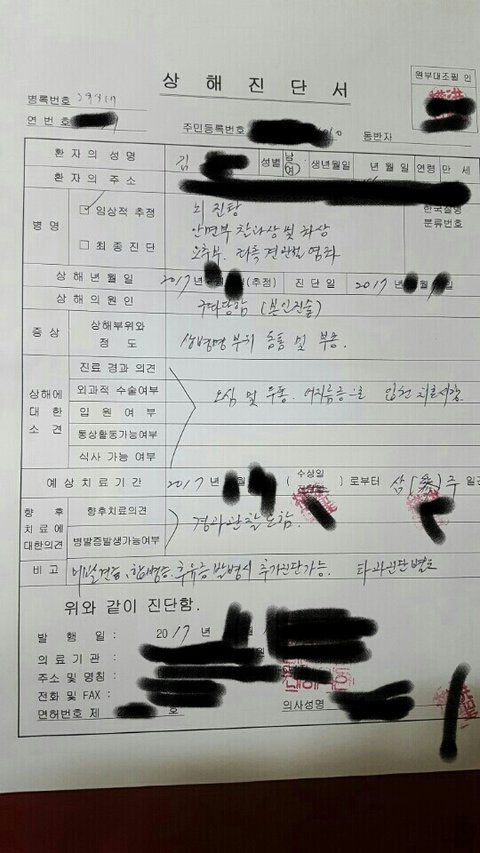 상 해 진 단 서
원부대조필 인
병록번호
연 번 호
주민등록번호
동반자
환 자 의 성 명 김 성별 남 여 생년월일 년 월 일 연령 만 세
환 자 의 주 소
병 명
☑ 임상적 추정
□ 최 종 진 단
한국질병
분류번호
뇌 진탕
안면부 찰과상 및 좌상
요추부, 견관절 염좌
상 해 년 월 일 2017 (추정) 진 단 일 2017
상 해 의 원 인 구타당함 (본인진술)
증 상
상해부위와
정 도
상병명 부위 통통 및 부종.
상해에
대 한
소 견
진료 경과 의견
외과적 수술여부
입 원 여 부
통상활동가능여부
식사 가능 여부
오심 및 두통, 어지름증으로 입원 치료시행.
예 상 치 료 기 간 2017 년 (수상일 ) 로부터 삼 주 일간
향 후
치 료 에
대한의견
향후치료의견
병발증발생가능여부
경과관찰 요함.
비 고 합병증, 후유증 발병시 추가진단가능. 타과진단 별도
위와 같이 진단함.
발 행 일 : 2017 년
의 료 기 관 :
주소 및 명칭 :
전화 및 FAX :
면허번호 제 호
의사성명